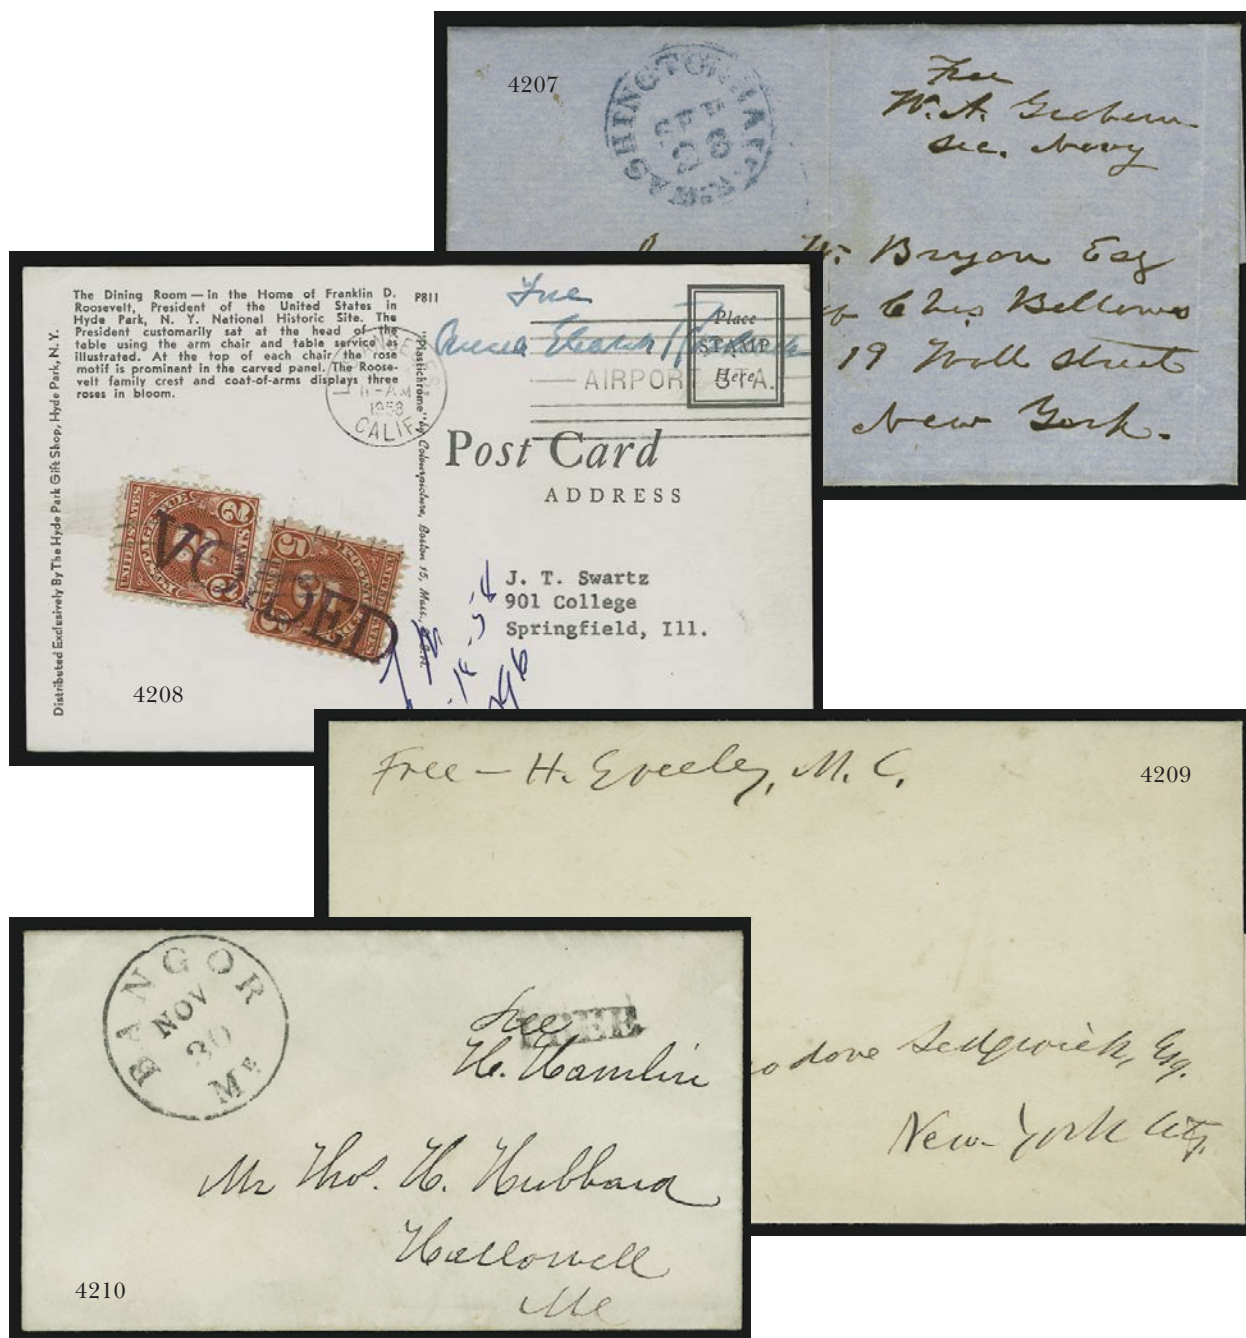 4207
WASHINGTON
Free
W. A. Graham
Sec. Navy
W. Bryan Esq
Bellows
19 Wall Street
New York.
The Dining Room — in the Home of Franklin D.
Roosevelt, President of the United States in
Hyde Park, N. Y. National Historic Site. The
President customarily sat at the head of the
table using the arm chair and table service as
illustrated. At the top of each chair the rose
motif is prominent in the carved panel. The Roose-
velt family crest and coat-of-arms displays three
roses in bloom.
P811
Free
Place
STAMP
Here
AIRPORT STA.
AM
1958
CALIF
Distributed Exclusively By The Hyde Park Gift Shop, Hyde Park, N. Y.
"Plastichrome" by Colourpicture, Boston 15, Mass., U.S.A.
Post Card
ADDRESS
2
5
VOIDED
J. T. Swartz
901 College
Springfield, Ill.
4208
Free — H. Greeley, M. C.
4209
Sedgwick, Esq.
New York City.
BANGOR
NOV
30
ME
FREE
Free
H. Hamlin
Mr Thos. H. Hubbard
Hallowell
Me
4210